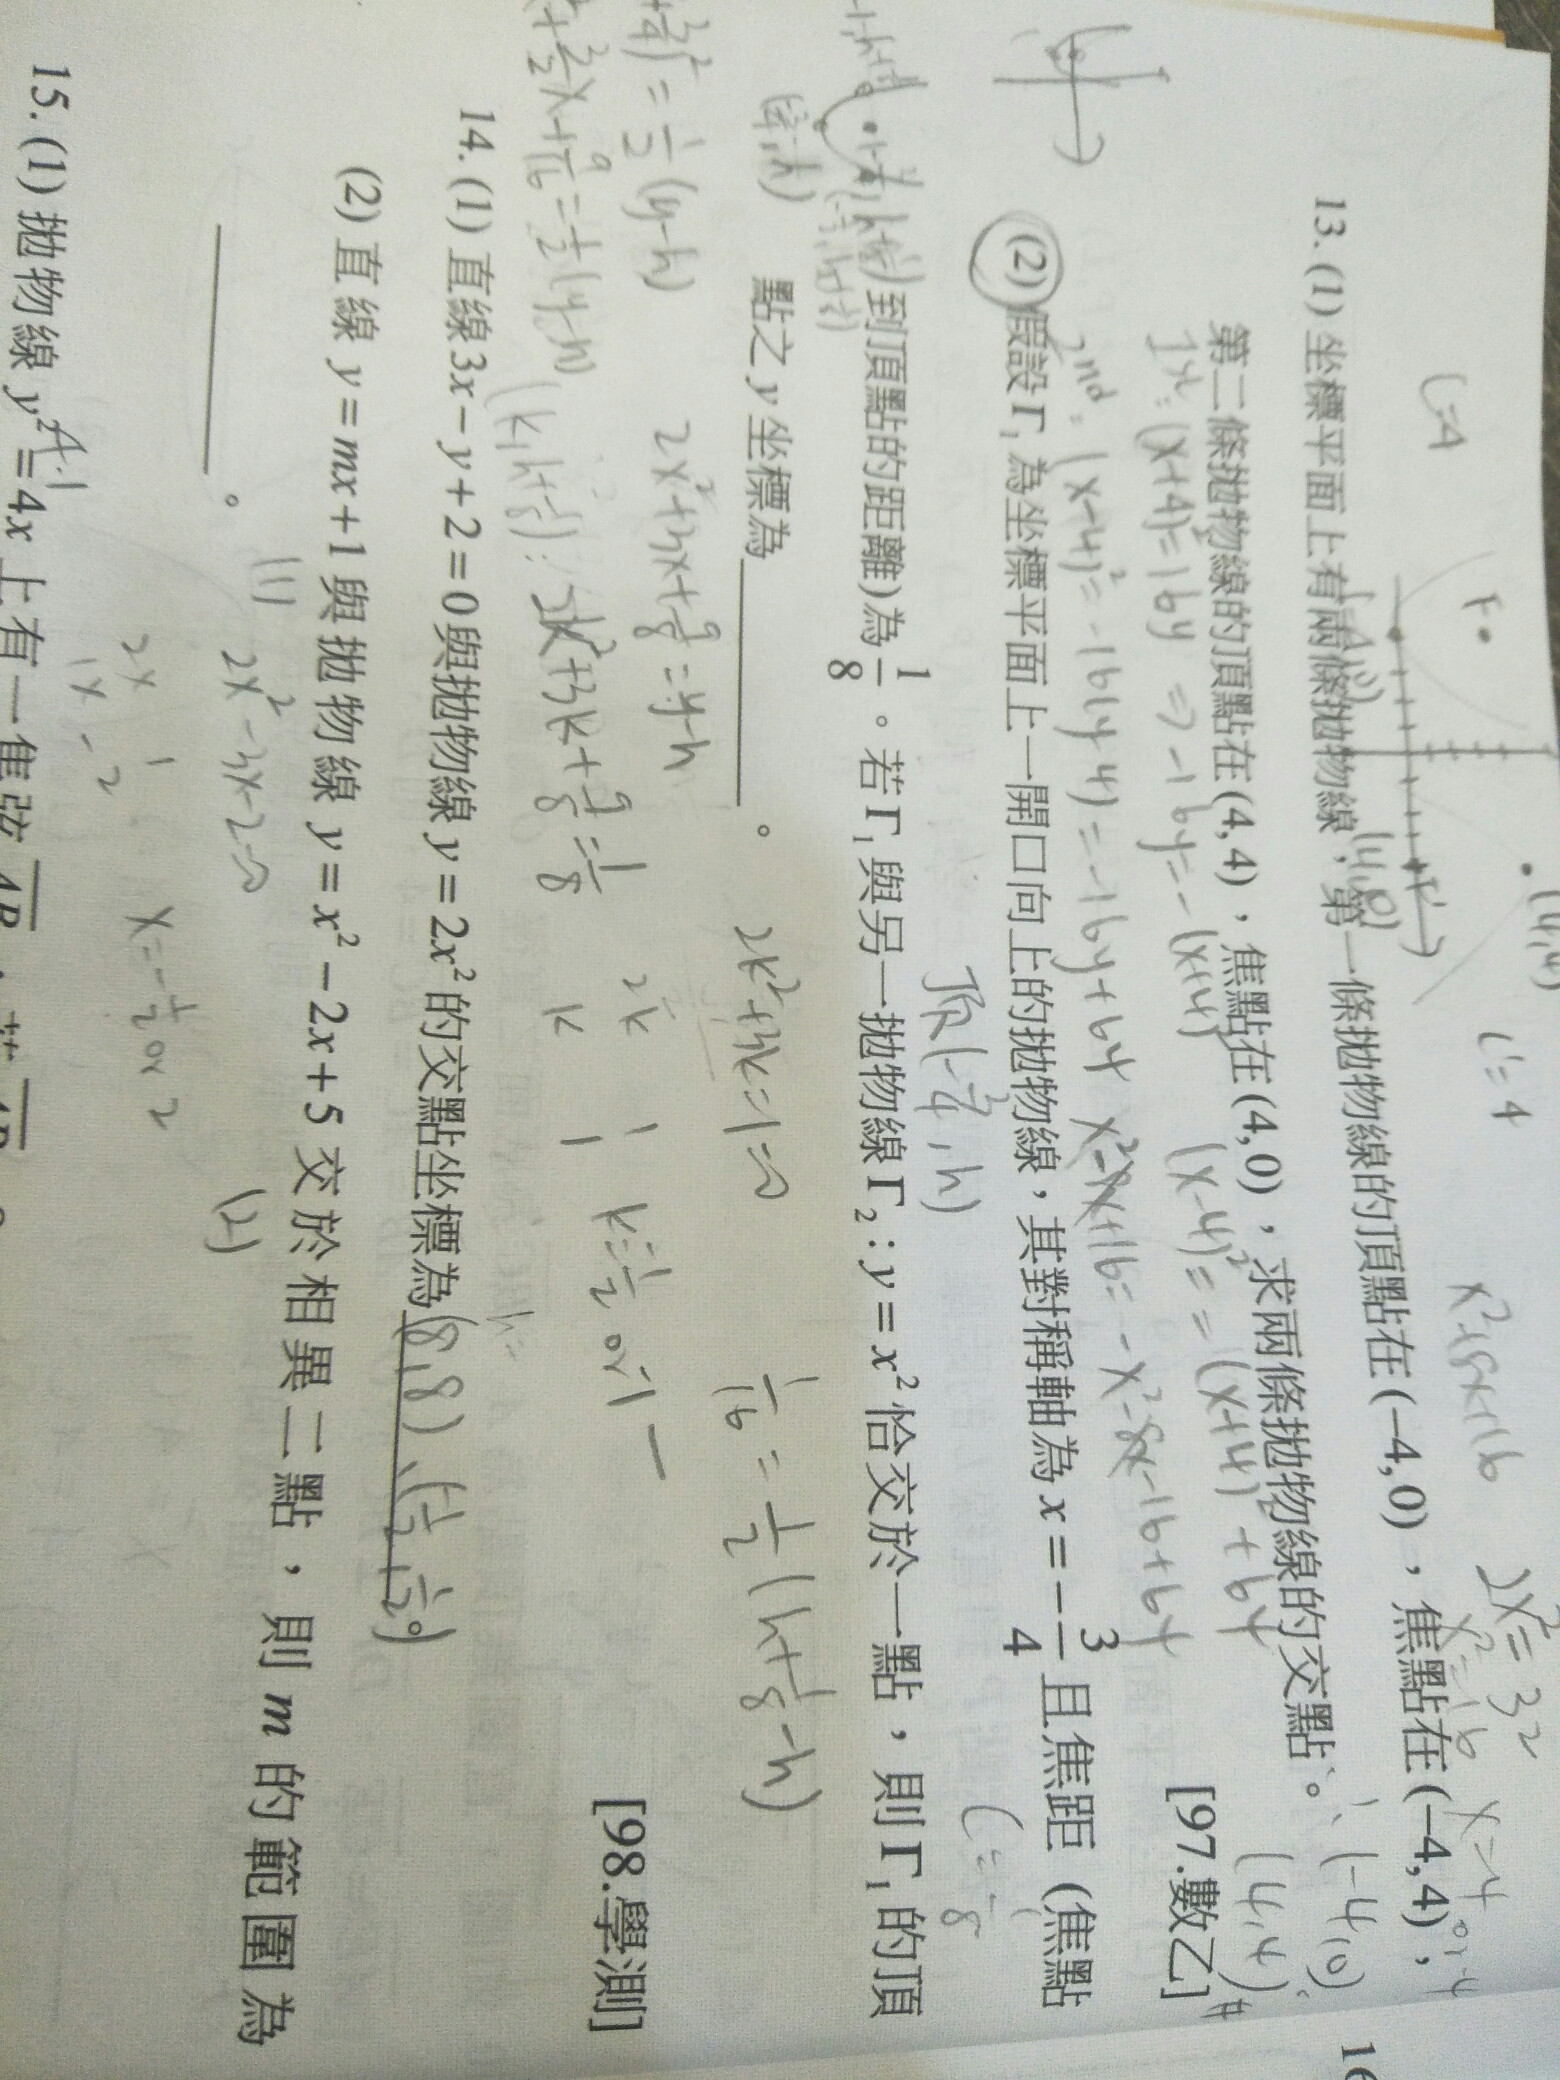 13. (1) 坐標平面上有兩條拋物線，第一條拋物線的頂點在(−4, 0)，焦點在(−4, 4)，
第二條拋物線的頂點在(4, 4)，焦點在(4, 0)，求兩條拋物線的交點。
[97.數乙]
(2) 假設Γ₁為坐標平面上一開口向上的拋物線，其對稱軸為 x = −3/4 且焦距 (焦點
到頂點的距離)為 1/8 。若Γ₁與另一拋物線Γ₂ : y = x² 恰交於一點，則Γ₁的頂
點之 y 坐標為________。
[98.學測]
14. (1) 直線 3x − y + 2 = 0 與拋物線 y = 2x² 的交點坐標為________。
(2) 直線 y = mx + 1 與拋物線 y = x² − 2x + 5 交於相異二點，則 m 的範圍為
________。
15. (1) 拋物線 y² = 4x 上有一焦弦 AB
16
C=4
F
(4,4)
C'=4
x²+8x+16
2x²=32
x²=16
x=4 or -4
(-4,0)、
(4,4)#
1st: (x+4)²=16y ⇒ -16y=-(x+4)²
(x-4)²= -(x+4)²+64
2nd: (x-4)²=-16(y-4)=-16y+64
x²-8x+16=-x²-8x-16+64
頂(-3/4, h)
C=1/8
2x²+3x+9/8=y-h
2k²+3k+1=0
1/16=1/2(h+1/8-h)
(k, h+1/8):2k²+3k+9/8=1/8
2k 1
k 1
k=-1/2 or -1
(1) 2x²-3x-2=0
2x 1
1x -2
x=-1/2 or 2
(2)